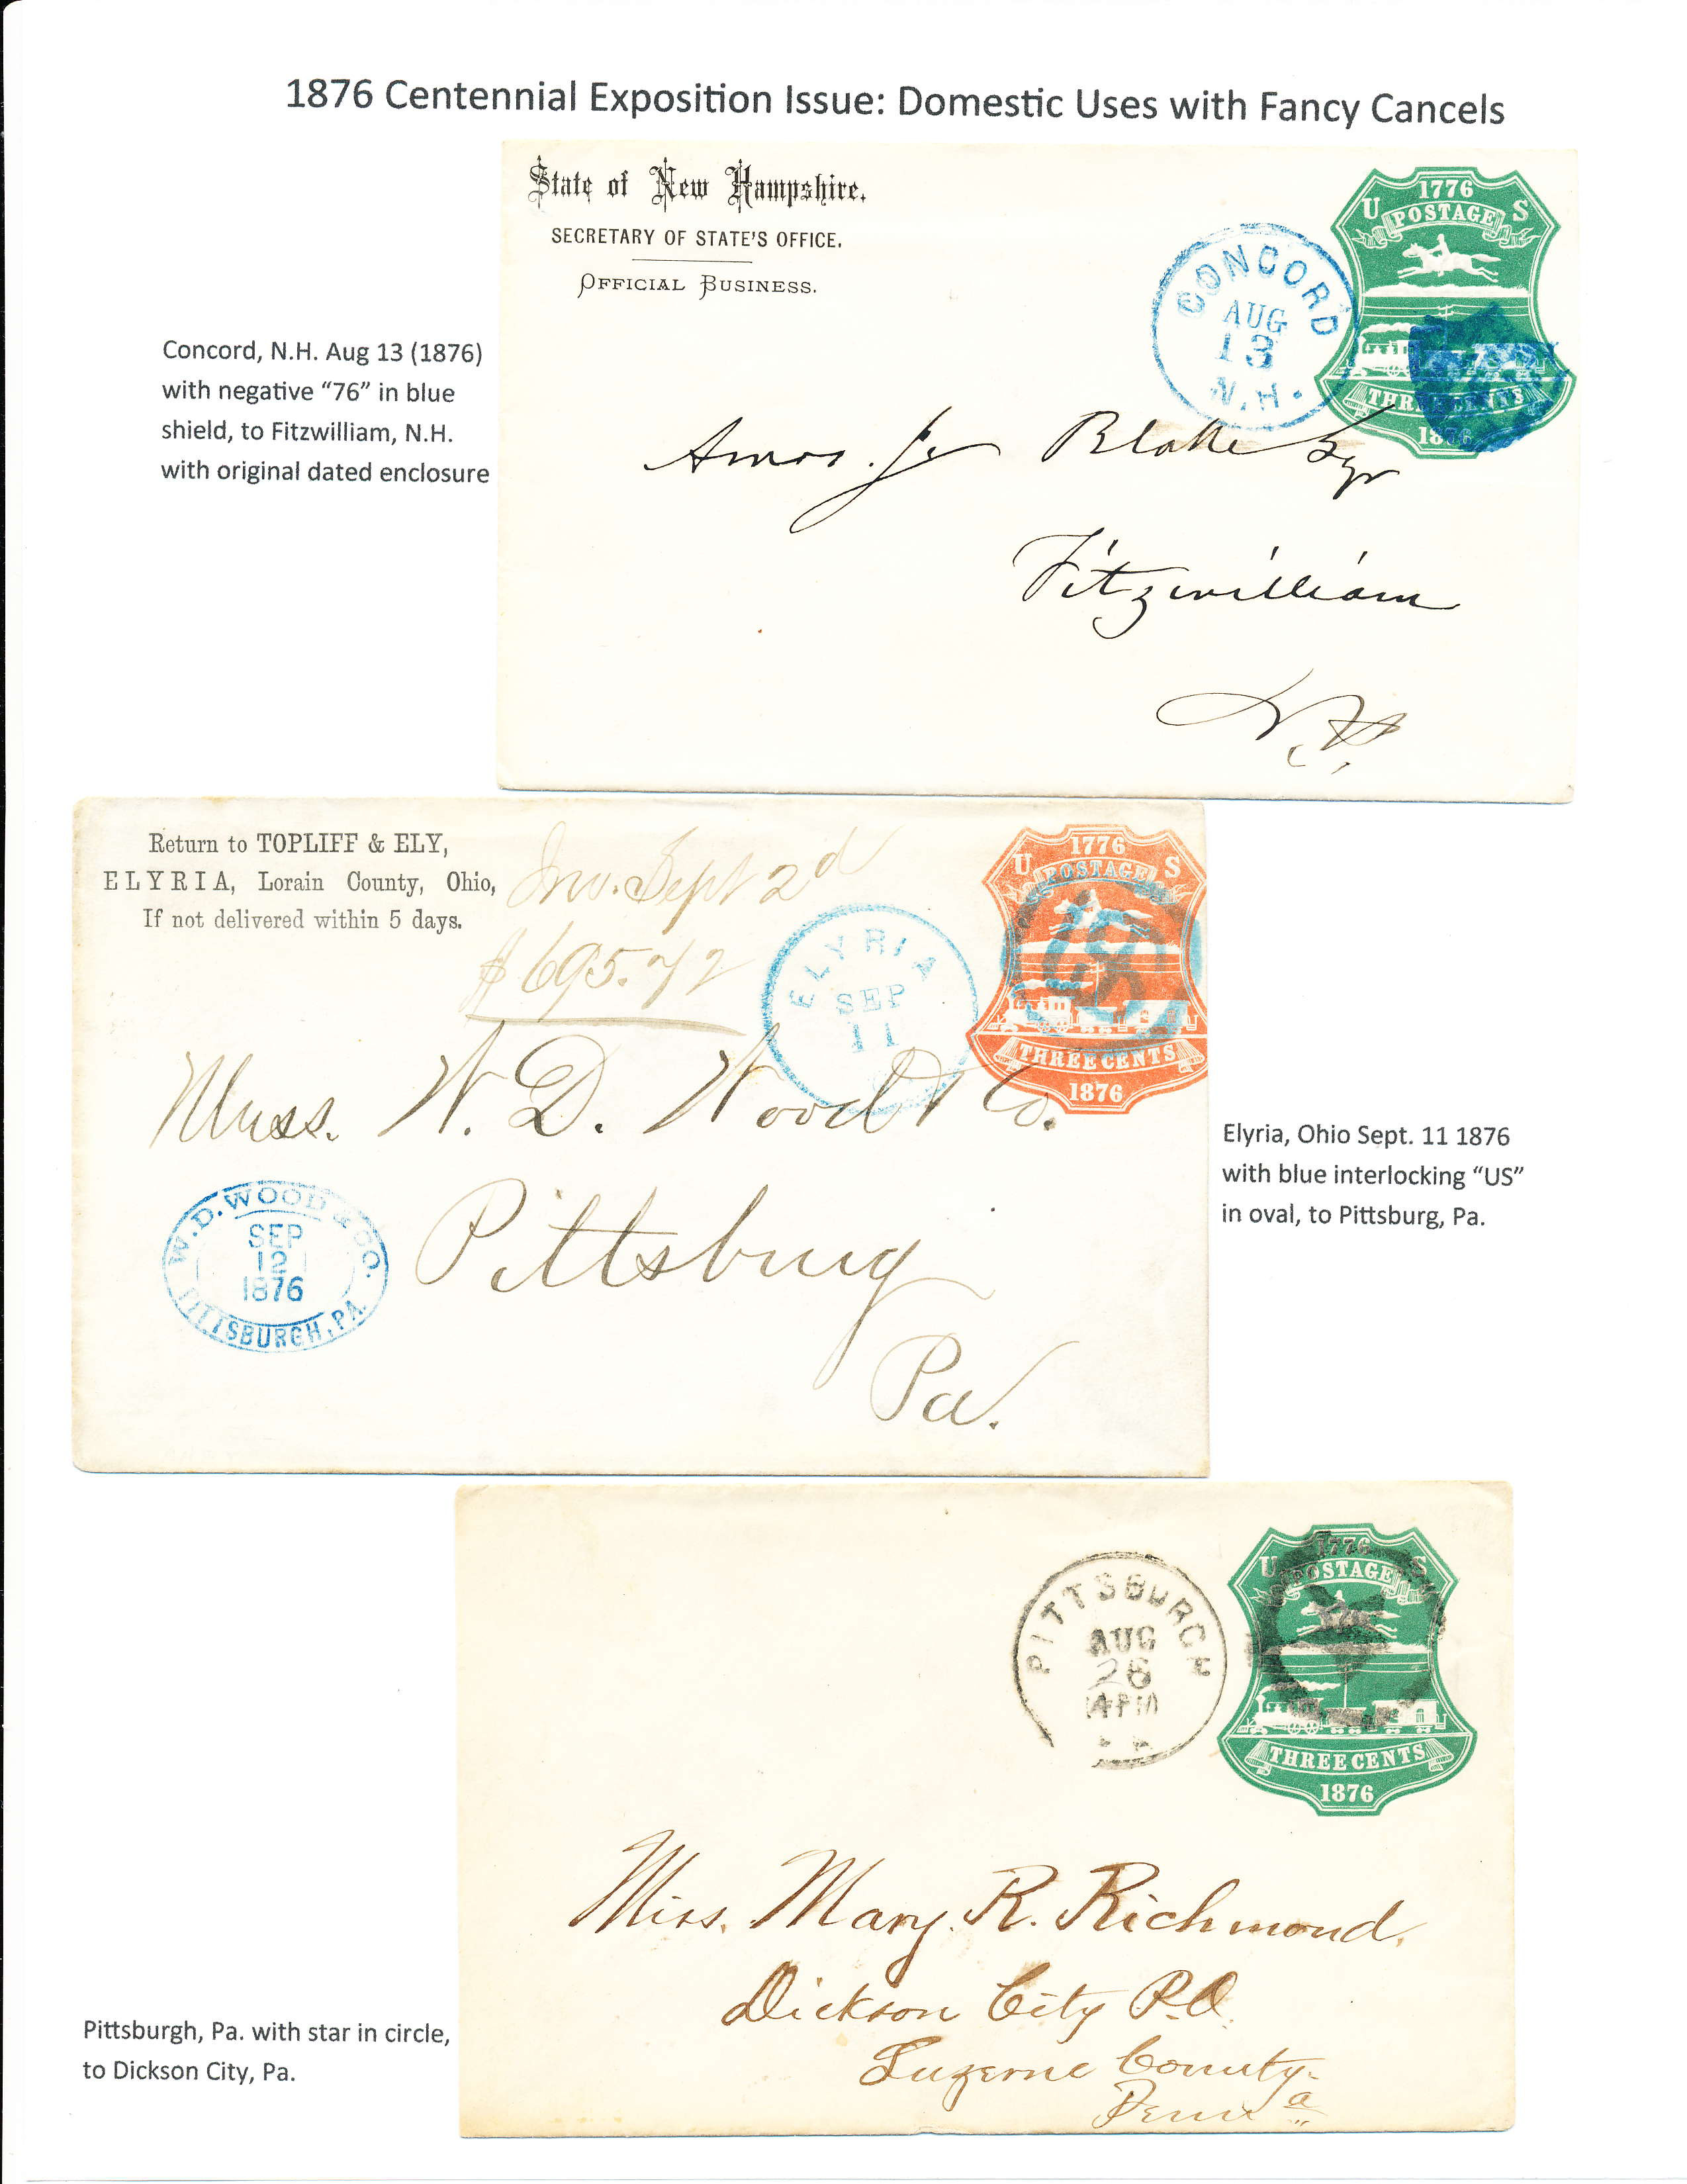 1876 Centennial Exposition Issue: Domestic Uses with Fancy Cancels
State of New Hampshire.
SECRETARY OF STATE'S OFFICE.
OFFICIAL BUSINESS.
1776
U POSTAGE S
THREE CENTS
1876
CONCORD
AUG
13
N.H.
Concord, N.H. Aug 13 (1876)
with negative “76” in blue
shield, to Fitzwilliam, N.H.
with original dated enclosure
Amos. J. Blake Esqr
Fitzwilliam
N.H.
Return to TOPLIFF & ELY,
ELYRIA, Lorain County, Ohio,
If not delivered within 5 days.
Inv. Sept 2d
$695.72
ELYRIA
SEP
11
1776
U POSTAGE S
US
THREE CENTS
1876
Mess. W. D. Wood & Co.
Pittsburg
Pa.
W.D. WOOD & CO.
SEP
12
1876
PITTSBURGH, PA.
Elyria, Ohio Sept. 11 1876
with blue interlocking “US”
in oval, to Pittsburg, Pa.
PITTSBURGH
AUG
26
4 PM
1776
U POSTAGE S
THREE CENTS
1876
Miss. Mary. R. Richmond.
Dickson City P.O.
Luzerne County.
Penna
Pittsburgh, Pa. with star in circle,
to Dickson City, Pa.